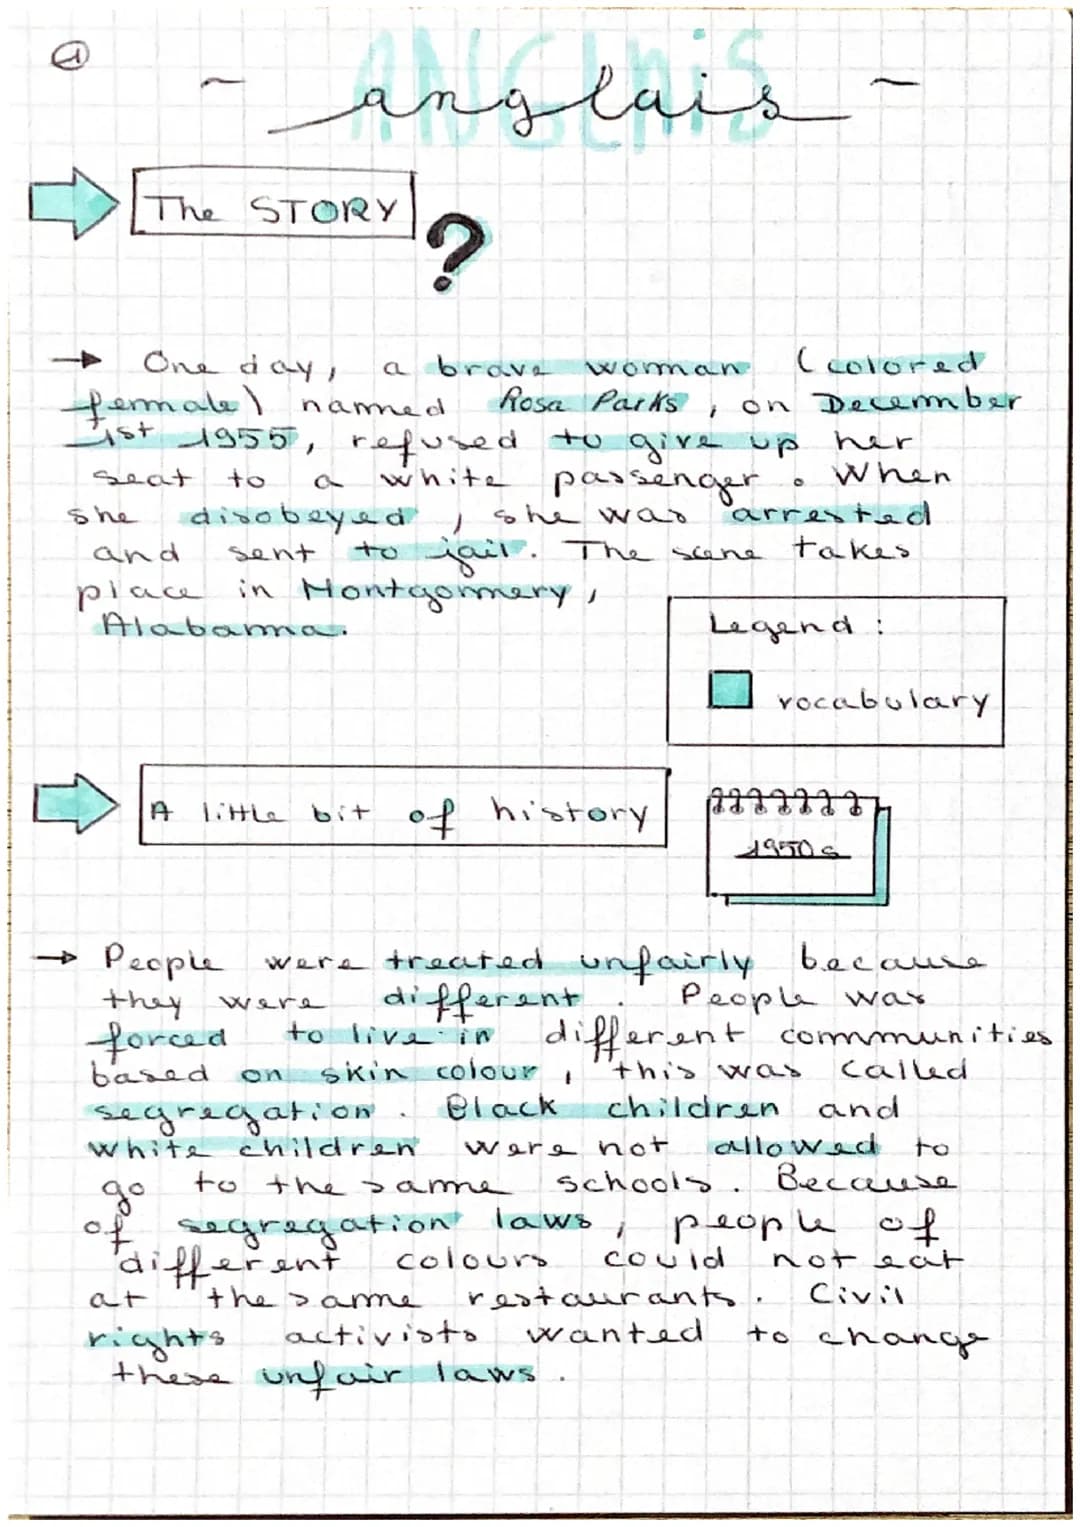 1
ANGLAIS
- anglais -
The STORY ?
→ One day, a brave woman (colored
female) named Rosa Parks, on December
1st 1955, refused to give up her
seat to a white passenger. When
she disobeyed, she was arrested
and sent to jail. The scene takes
place in Montgommery,
Alabama.
Legend :
vocabulary
A little bit of history
1950s
→ People were treated unfairly because
they were different. People was
forced to live in different communities
based on skin colour, this was called
segregation. Black children and
white children were not allowed to
go to the same schools. Because
of segregation laws, people of
different colours could not eat
at the same restaurants. Civil
rights activists wanted to change
these unfair laws.